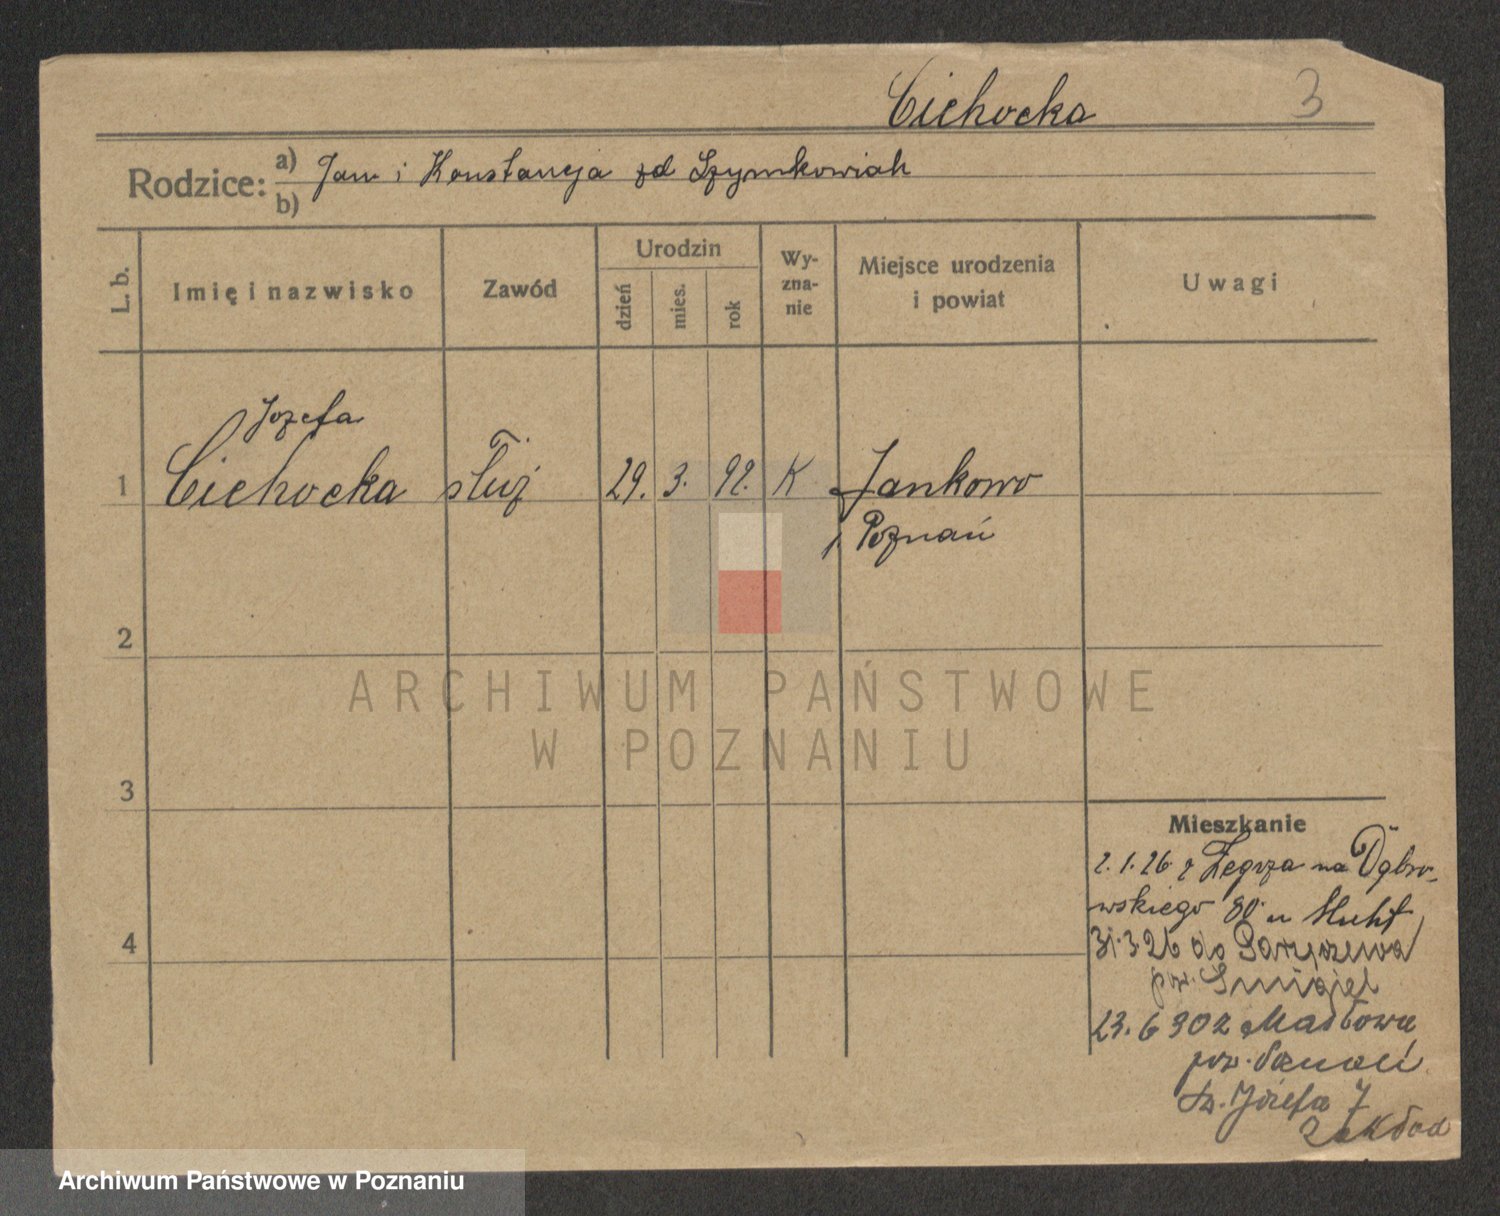 Cichocka 3
Rodzice: a) Jan i Konstancja zd Szymkowiak
b)
L. b. Imię i nazwisko Zawód Urodzin dzień mies. rok Wy-zna-nie Miejsce urodzenia i powiat Uwagi
Józefa
1 Cichocka służ 29. 3. 92. K Jankowo
Poznań
2
ARCHIWUM PAŃSTWOWE
W POZNANIU
3
Mieszkanie
2.1.26 z Zegrza na Dąbro-
wskiego 80 u
4
31.3.26 do
pow. Śmigiel
23.6 30 z Masłowa
pow.
Św. Józefa 7
Zakład
Archiwum Państwowe w Poznaniu